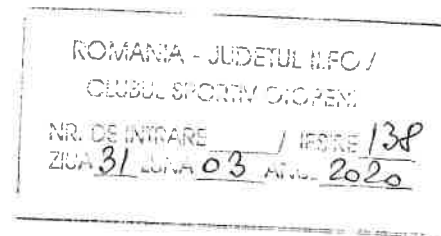 ROMANIA - JUDETUL ILFOV
CLUBUL SPORTIV OTOPENI
NR. DE INTRARE ______ / IESIRE 138
ZIUA 31 LUNA 03 ANUL 2020